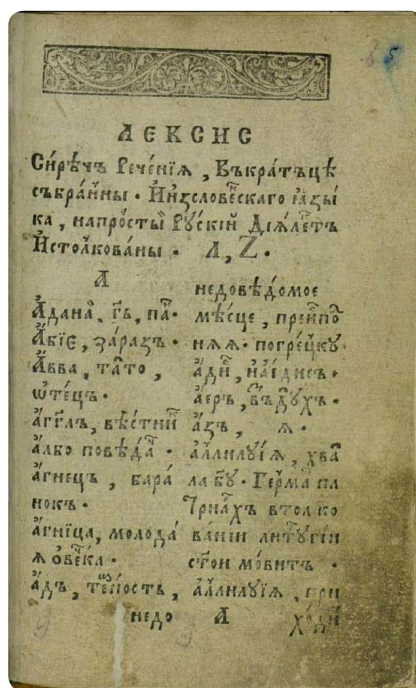 ЛЕКСИС
Сирѣчъ Реченїѧ, Въкратъцѣ
събранны. Изсловенскаго ѩзы
ка, напросты Рускїй Дїѧлектъ
Истолкованы. А, Z.
А
Адонаи, гь, па.
Абїе, заразъ.
Авва, тато,
ѿтецъ.
аггл҃ъ, вѣстни
албо повѣда.
агнецъ, бара
нокъ.
агница, молода
ѧ овечка.
адъ, темность,
недо
недовѣдомое
мѣсце, преиспо
нѧѧ. погрецку
адй, аидисъ.
аеръ, въздухъ.
азъ, ѧ.
аллилуїѧ, хва
ла бу. Герма па
трїахъ втолко
ванїи литꙋргїи
стои мовитъ.
аллилуїѧ, при
А ходи